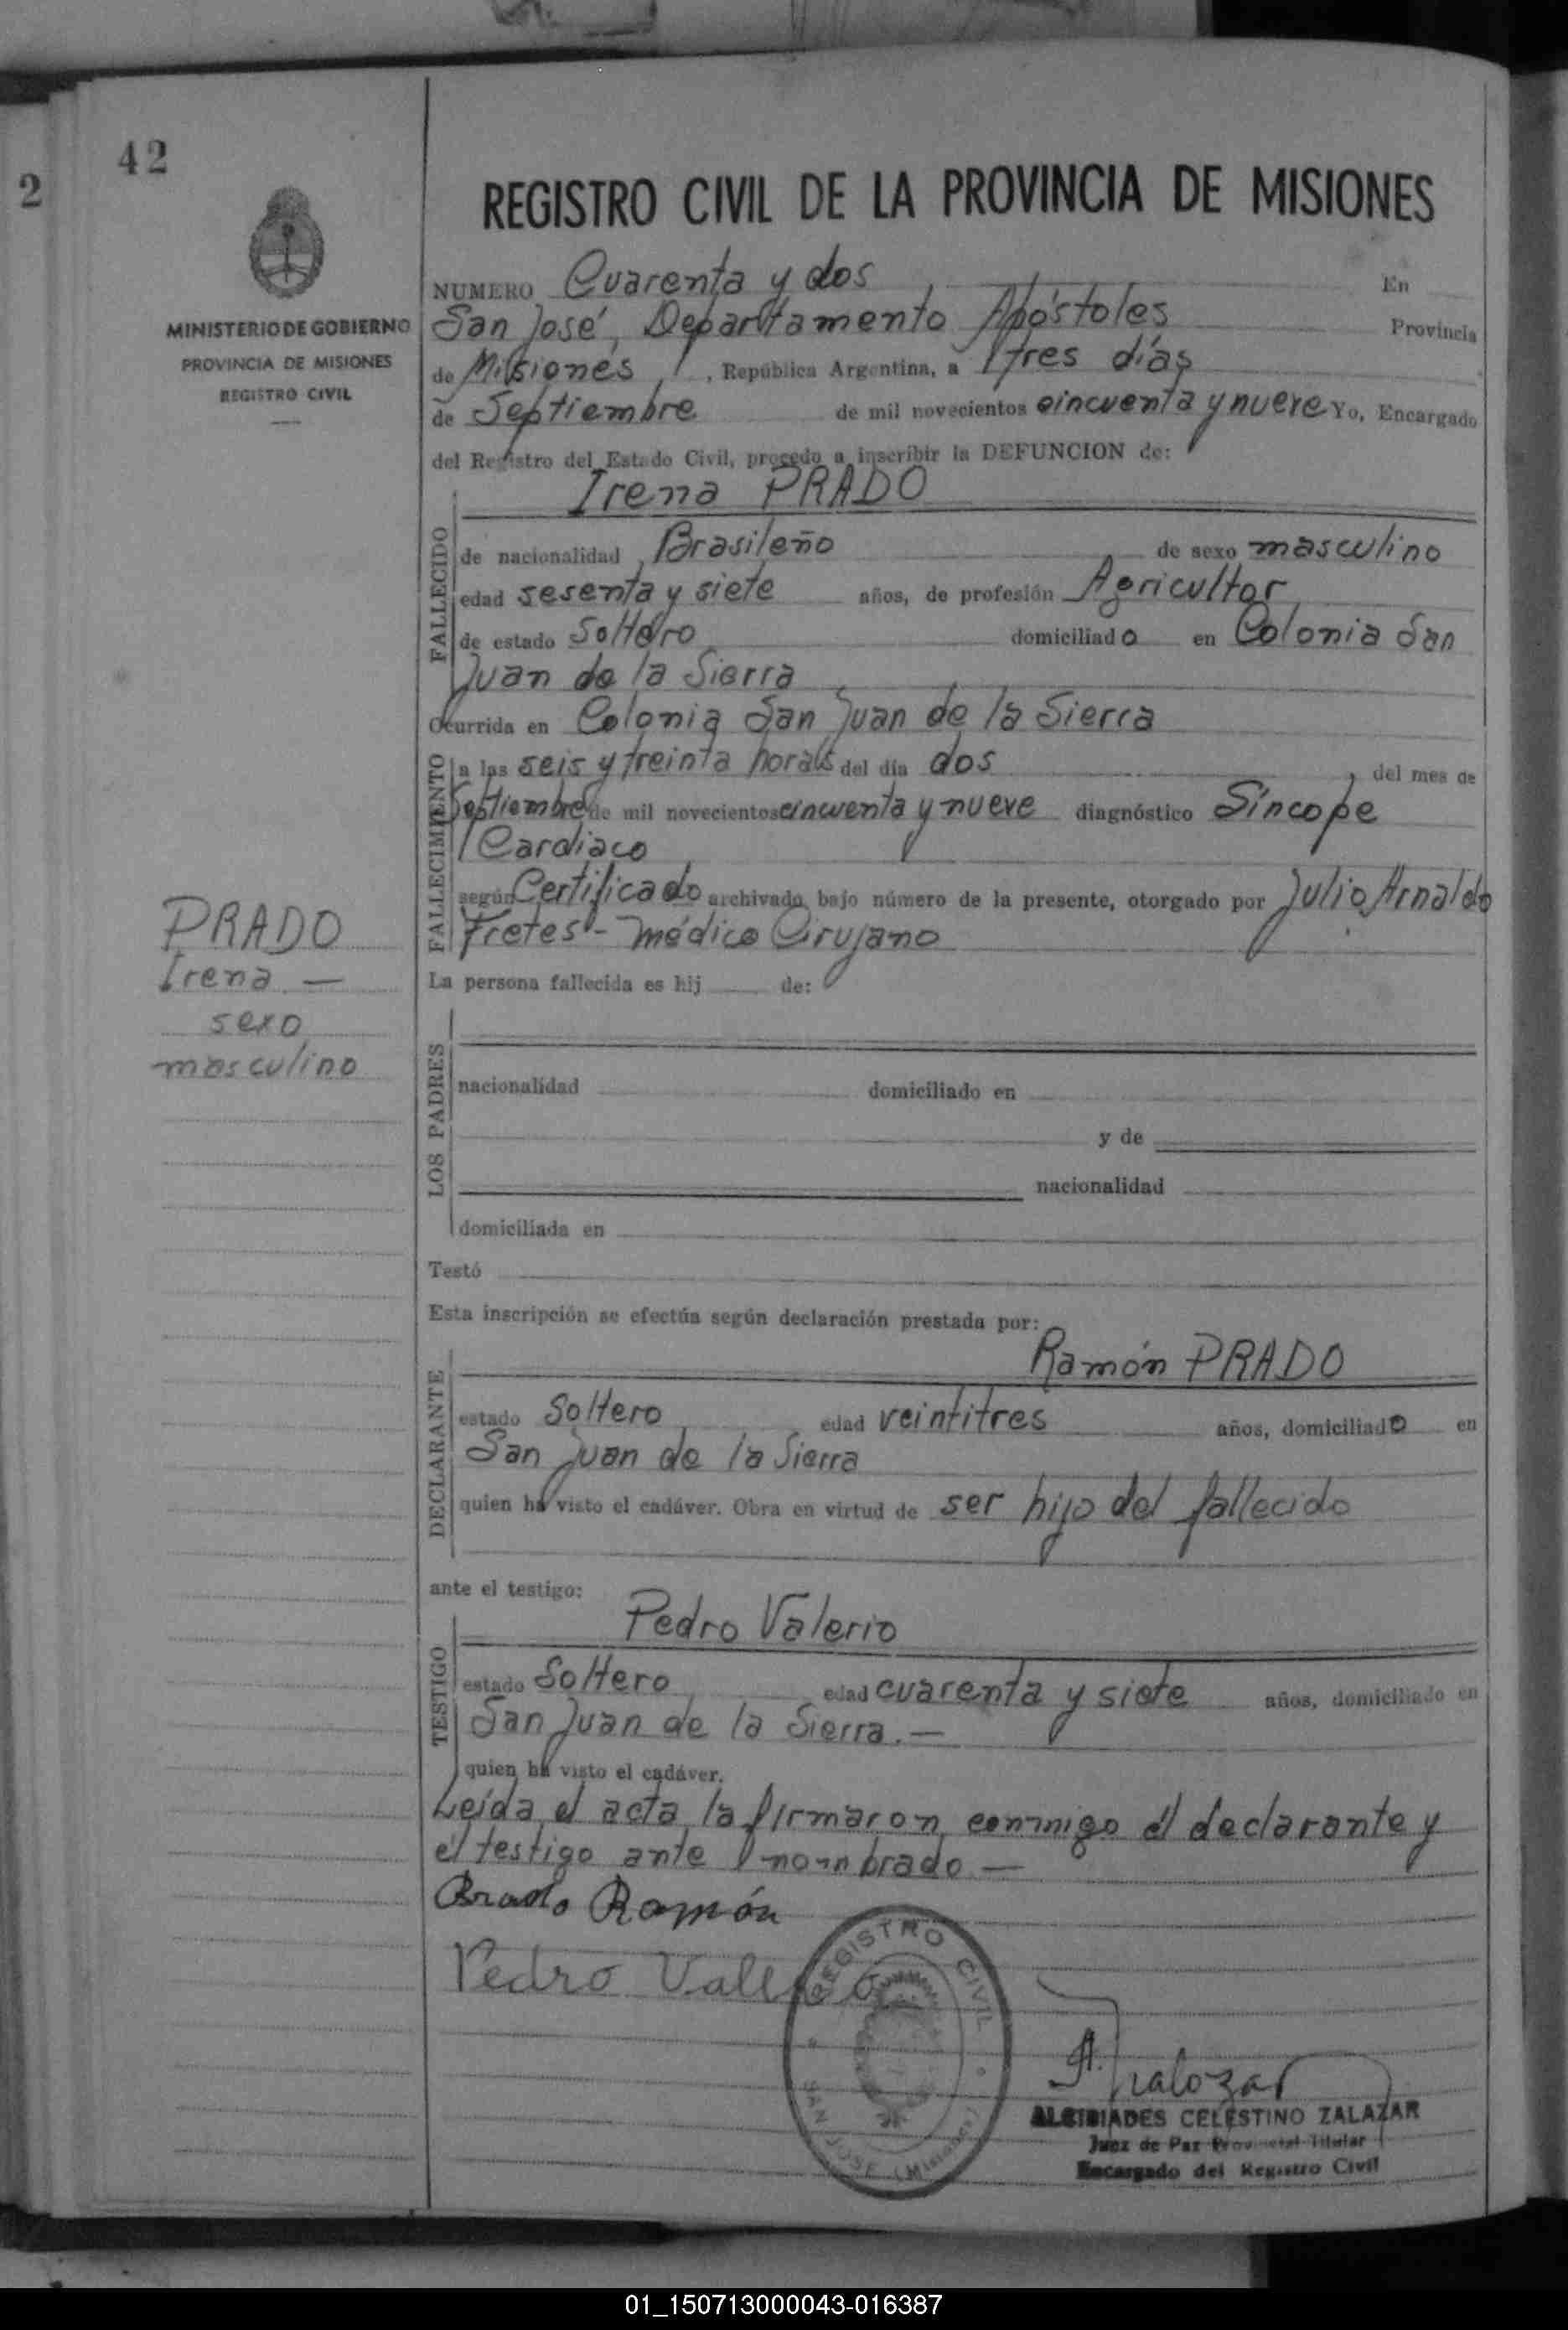 42
2
MINISTERIO DE GOBIERNO
PROVINCIA DE MISIONES
REGISTRO CIVIL
REGISTRO CIVIL DE LA PROVINCIA DE MISIONES
NUMERO Cuarenta y dos En
San José, Departamento Apóstoles Provincia
de Misiones, República Argentina, a tres días
de Septiembre de mil novecientos cincuenta y nueve Yo, Encargado
del Registro del Estado Civil, procedo a inscribir la DEFUNCION de:
Irena PRADO
FALLECIDO
de nacionalidad Brasileño de sexo masculino
edad sesenta y siete años, de profesión Agricultor
de estado Soltero domiciliado en Colonia San
Juan de la Sierra
Ocurrida en Colonia San Juan de la Sierra
FALLECIMIENTO
a las seis y treinta horas del día dos, del mes de
Septiembre de mil novecientos cincuenta y nueve diagnóstico Síncope
Cardiaco
según Certificado archivado bajo número de la presente, otorgado por Julio Arnaldo
Fretes - médico Cirujano
PRADO
Irena —
sexo
masculino
La persona fallecida es hij de:
LOS PADRES
nacionalidad domiciliado en
y de
nacionalidad
domiciliada en
Testó
Esta inscripción se efectúa según declaración prestada por:
Ramón PRADO
DECLARANTE
estado Soltero edad veintitres años, domiciliado en
San Juan de la Sierra
quien ha visto el cadáver. Obra en virtud de ser hijo del fallecido
ante el testigo:
Pedro Valerio
TESTIGO
estado Soltero edad cuarenta y siete años, domiciliado en
San Juan de la Sierra. —
quien ha visto el cadáver.
Leída el acta la firmaron conmigo el declarante y
el testigo ante nombrado —
Prado Ramón
Pedro Valerio
REGISTRO CIVIL
SAN JOSE (Misiones)
A. Zalazar
ALCIBIADES CELESTINO ZALAZAR
Juez de Paz Provincial Titular
Encargado del Registro Civil
01_150713000043-016387